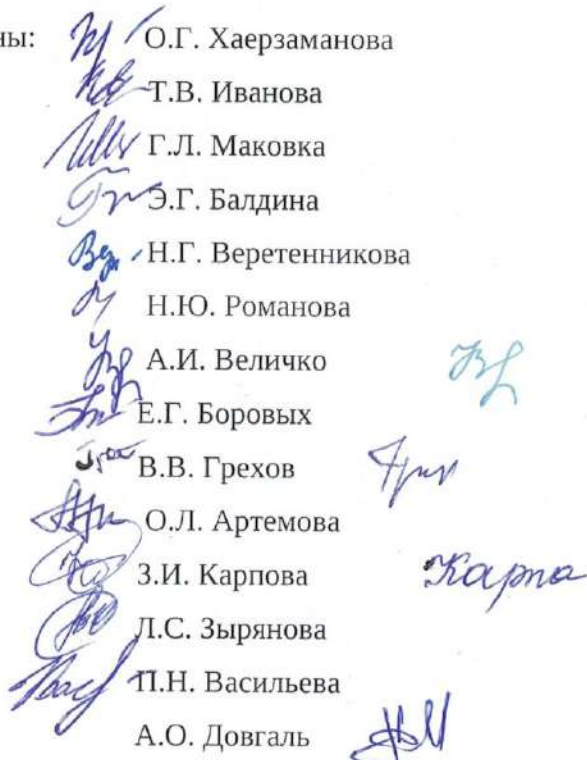 ны: О.Г. Хаерзаманова
Т.В. Иванова
Г.Л. Маковка
Э.Г. Балдина
Н.Г. Веретенникова
Н.Ю. Романова
А.И. Величко
Е.Г. Боровых
В.В. Грехов
О.Л. Артемова
З.И. Карпова Карпа
Л.С. Зырянова
П.Н. Васильева
А.О. Довгаль